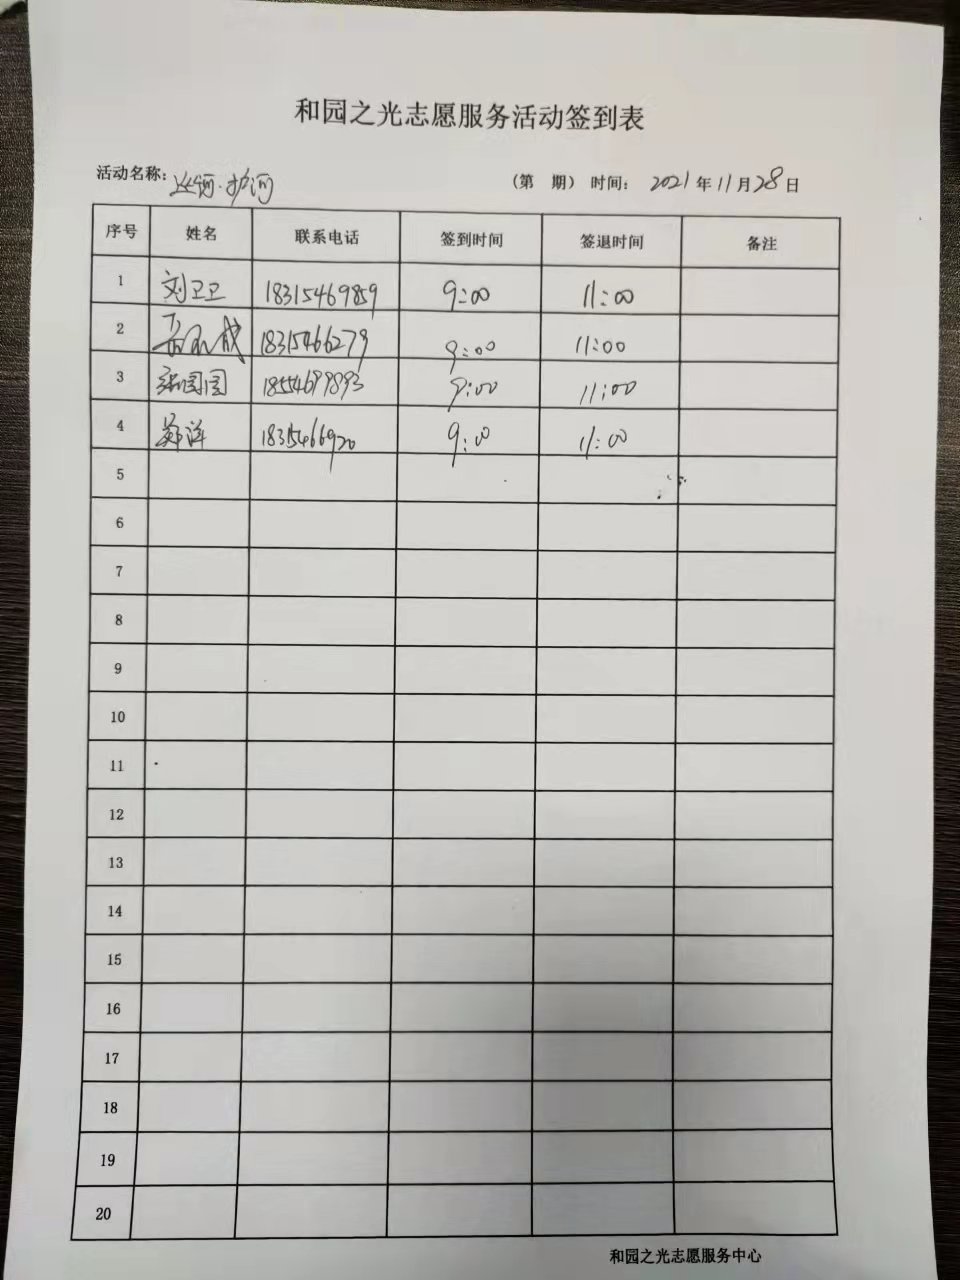 和园之光志愿服务活动签到表
活动名称：巡河·护河 （第 期）时间：2021年11月28日
序号 姓名 联系电话 签到时间 签退时间 备注
1 刘卫卫 18315469859 9:00 11:00
2 18315466279 9:00 11:00
3 张园园 18554699893 9:00 11:00
4 郑洋 18315466920 9:00 11:00
5
6
7
8
9
10
11
12
13
14
15
16
17
18
19
20
和园之光志愿服务中心